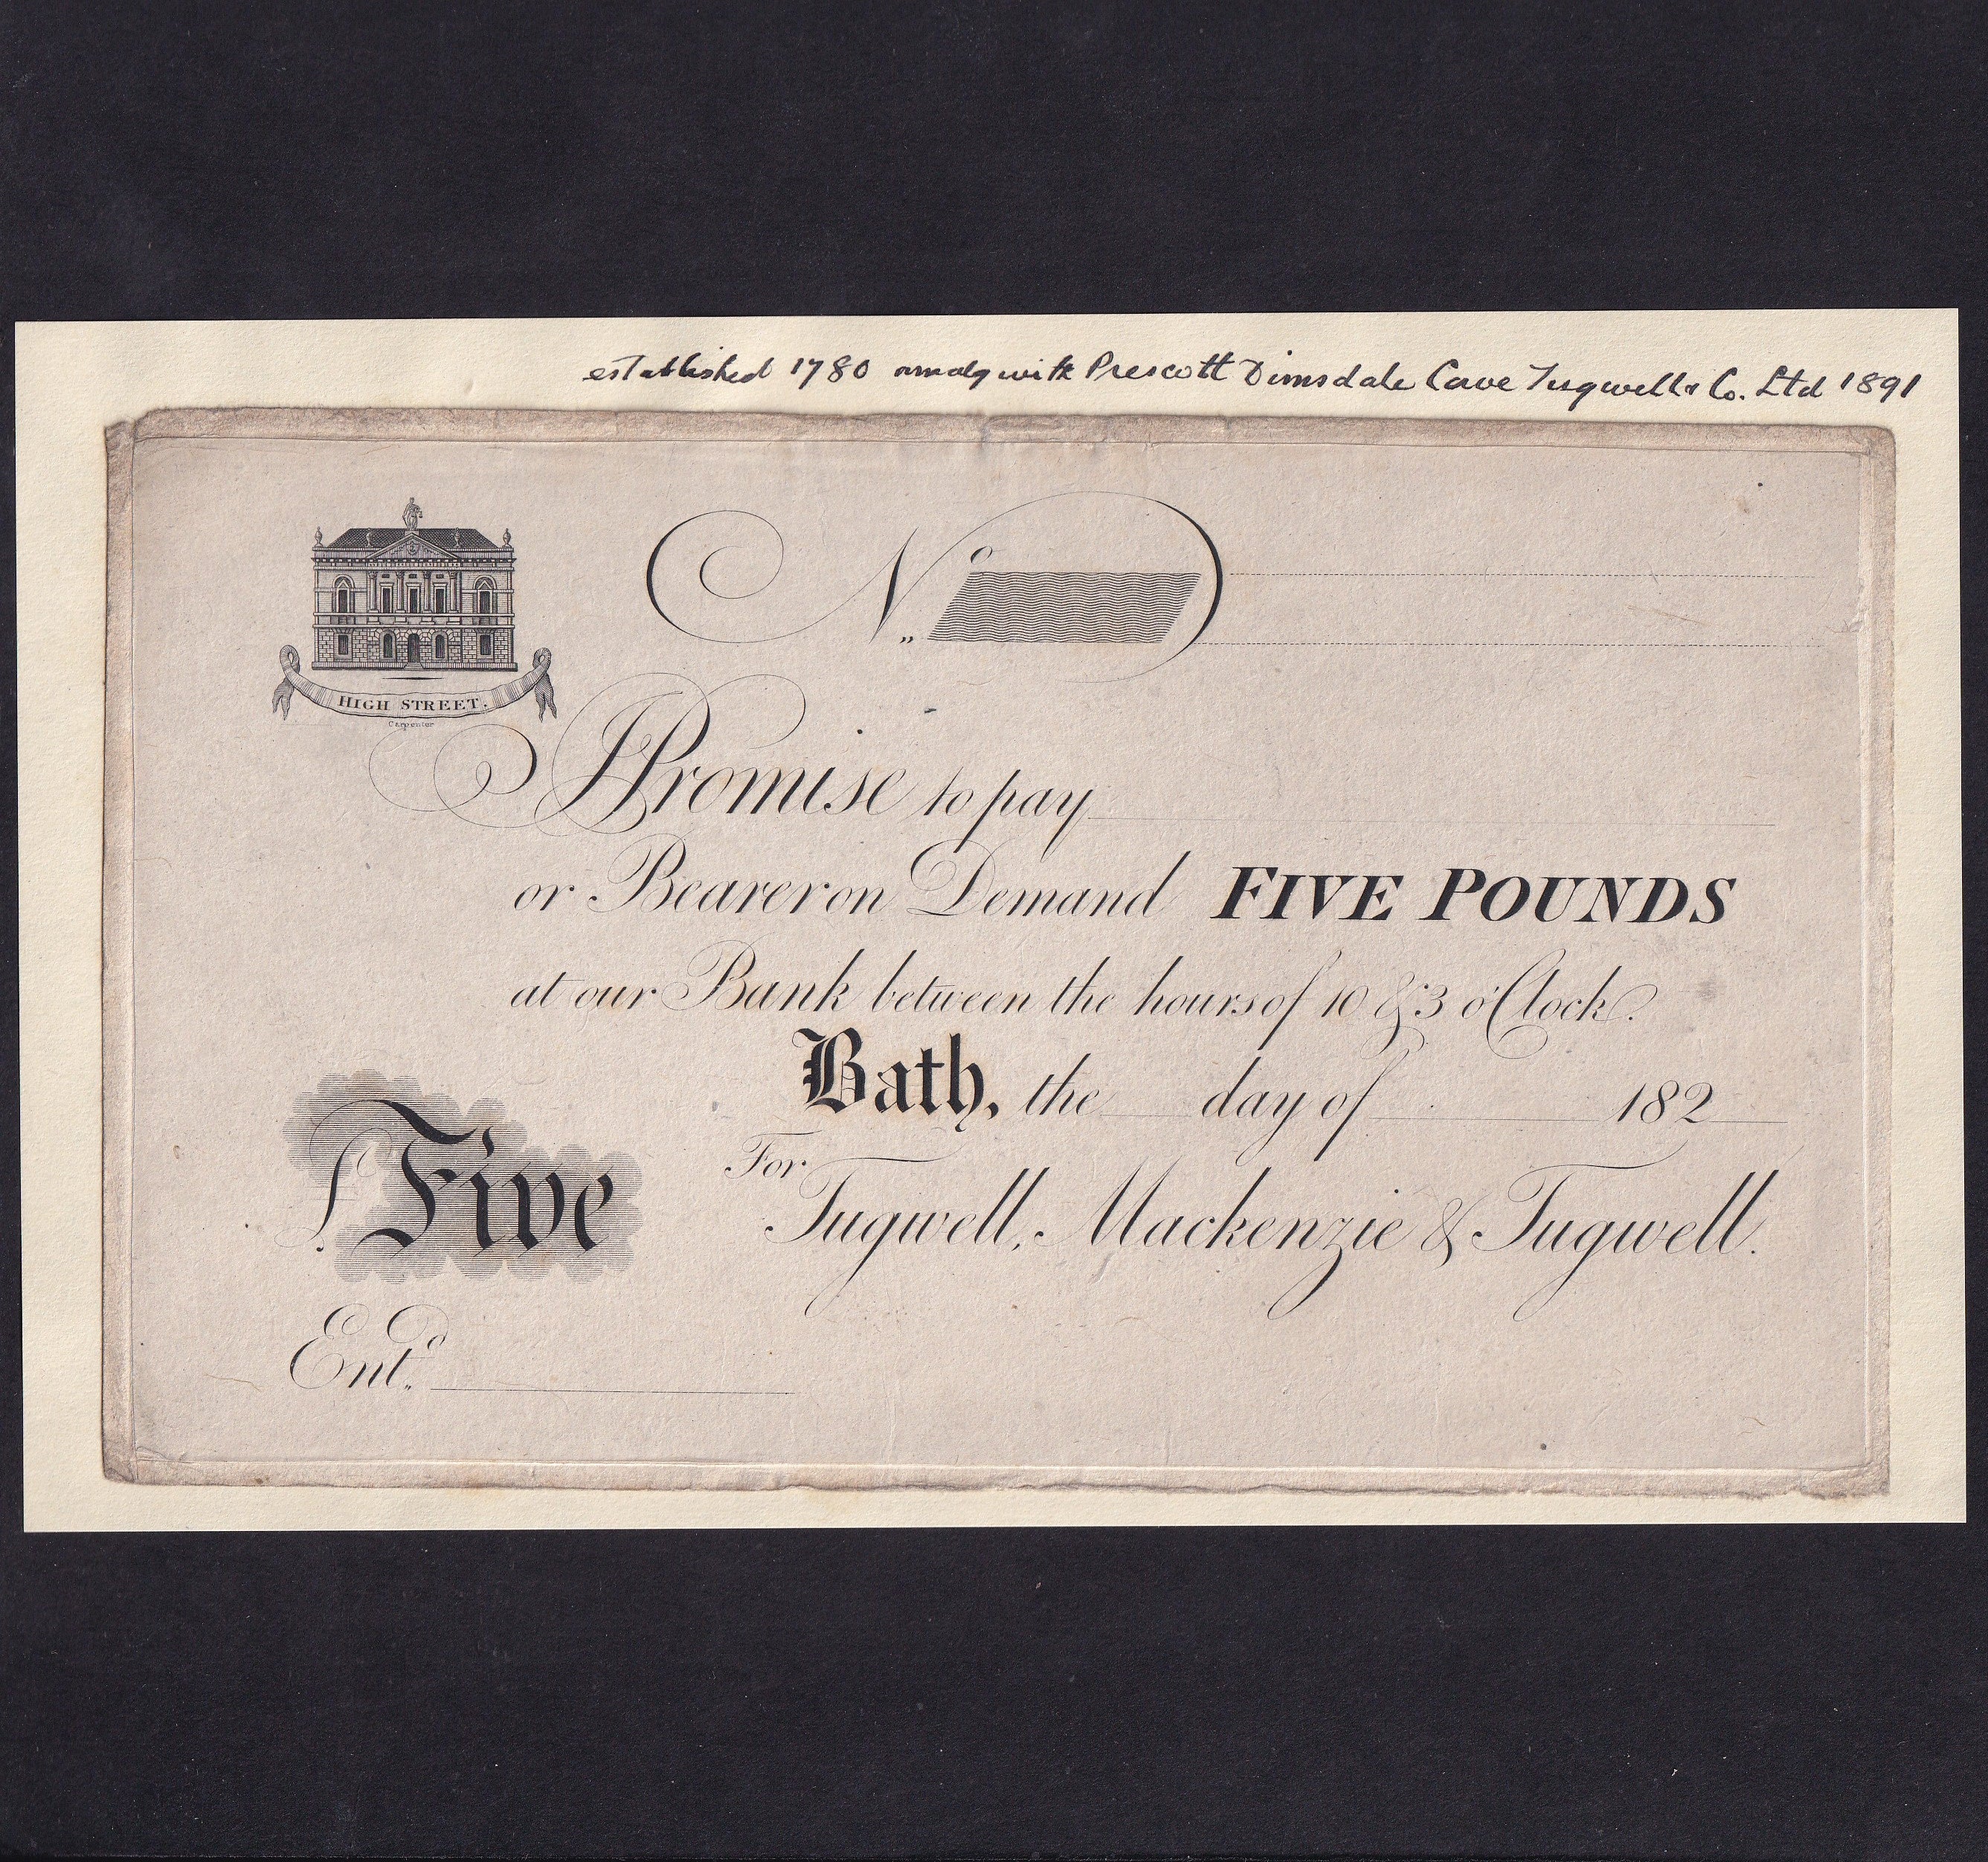 established 1780 amalg with Prescott Dimsdale Cave Tugwell & Co. Ltd 1891
No
HIGH STREET.
Carpenter
I Promise to pay
or Bearer on Demand FIVE POUNDS
at our Bank between the hours of 10 & 3 o'Clock.
Bath, the day of 182
For
£ Five
Tugwell, Mackenzie & Tugwell.
Entd.